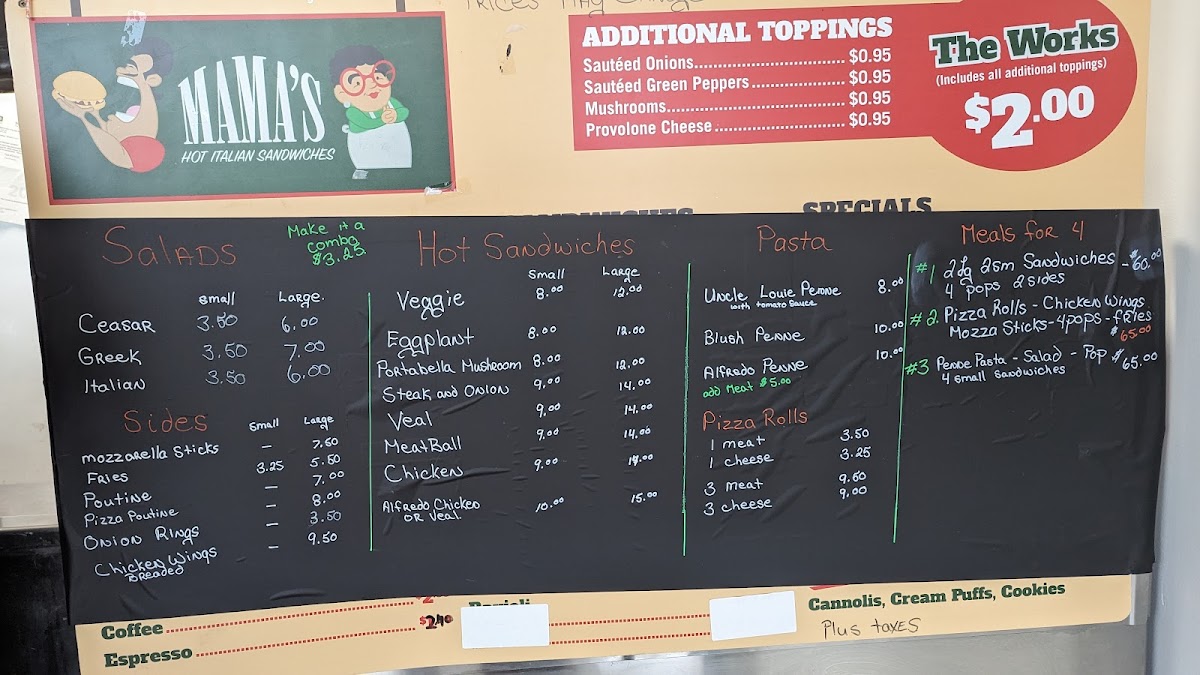 MAMA'S
HOT ITALIAN SANDWICHES
ADDITIONAL TOPPINGS
Sautéed Onions........ $0.95
Sautéed Green Peppers........ $0.95
Mushrooms........ $0.95
Provolone Cheese........ $0.95
The Works
(Includes all additional toppings)
$2.00
SPECIALS
Salads
Make it a
combo
$3.25
small Large.
Ceasar 3.50 6.00
Greek 3.50 7.00
Italian 3.50 6.00
Sides
small Large
mozzarella sticks — 7.50
Fries 3.25 5.50
Poutine — 7.00
Pizza Poutine — 8.00
Onion Rings — 3.50
Chicken Wings — 9.50
Breaded
Hot Sandwiches
small Large
Veggie 8.00 12.00
Eggplant 8.00 12.00
Portabella Mushroom 8.00 12.00
Steak and Onion 9.00 14.00
Veal 9.00 14.00
MeatBall 9.00 14.00
Chicken 9.00 14.00
Alfredo Chicken 10.00 15.00
or Veal
Pasta
Uncle Louie Penne 8.00
with tomato sauce
Blush Penne 10.00
Alfredo Penne 10.00
add Meat $5.00
Pizza Rolls
1 meat 3.50
1 cheese 3.25
3 meat 9.50
3 cheese 9.00
Meals for 4
#1 2 Lg 2 sm Sandwiches - $60.00
4 pops 2 sides
#2 Pizza Rolls - Chicken Wings
Mozza Sticks - 4 pops - fries
$65.00
#3 Penne Pasta - Salad - Pop $65.00
4 small sandwiches
Coffee........
Espresso........ $2.40
Cannolis, Cream Puffs, Cookies
Plus taxes